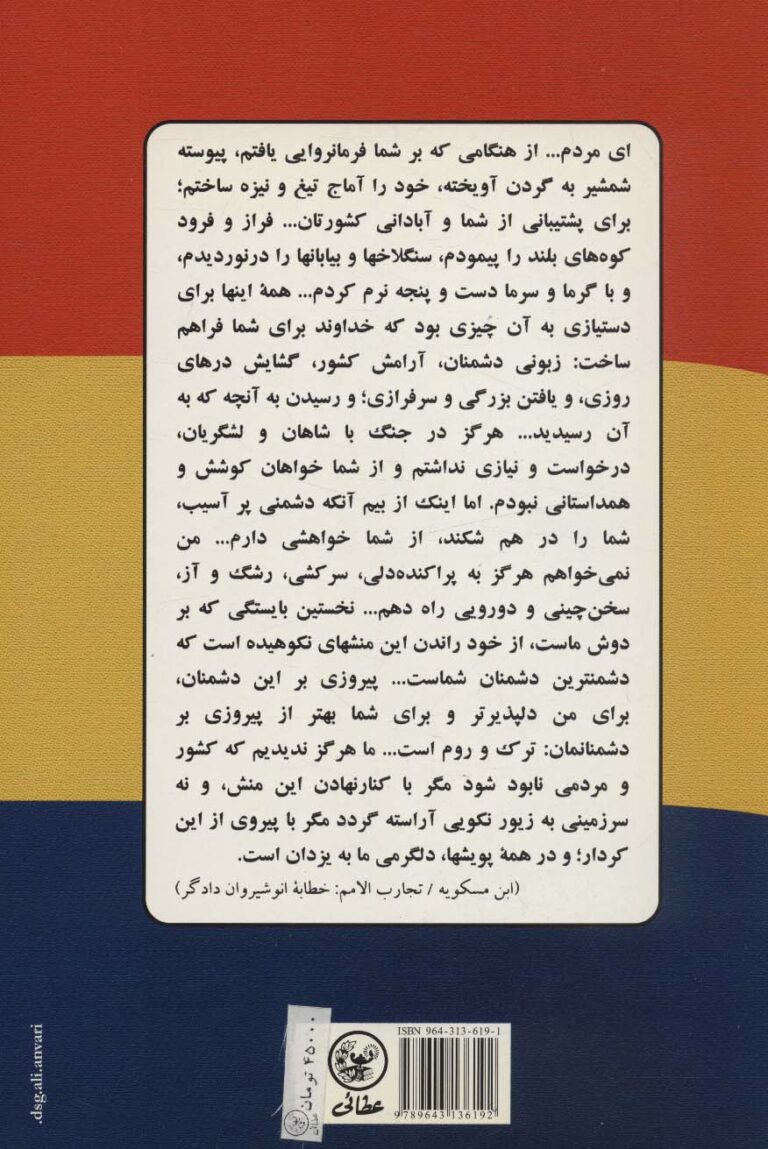 ای مردم... از هنگامی که بر شما فرمانروایی یافتم، پیوسته
شمشیر به گردن آویخته، خود را آماج تیغ و نیزه ساختم؛
برای پشتیبانی از شما و آبادانی کشورتان... فراز و فرود
کوه‌های بلند را پیمودم، سنگلاخها و بیابانها را درنوردیدم،
و با گرما و سرما دست و پنجه نرم کردم... همهٔ اینها برای
دستیازی به آن چیزی بود که خداوند برای شما فراهم
ساخت: زبونی دشمنان، آرامش کشور، گشایش درهای
روزی، و یافتن بزرگی و سرفرازی؛ و رسیدن به آنچه که به
آن رسیدید... هرگز در جنگ با شاهان و لشگریان،
درخواست و نیازی نداشتم و از شما خواهان کوشش و
همداستانی نبودم. اما اینک از بیم آنکه دشمنی پر آسیب،
شما را در هم شکند، از شما خواهشی دارم... من
نمی‌خواهم هرگز به پراکنده‌دلی، سرکشی، رشگ و آز،
سخن‌چینی و دورویی راه دهم... نخستین بایستگی که بر
دوش ماست، از خود راندن این منشهای نکوهیده است که
دشمنترین دشمنان شماست... پیروزی بر این دشمنان،
برای من دلپذیرتر و برای شما بهتر از پیروزی بر
دشمنانمان: ترک و روم است... ما هرگز ندیدیم که کشور
و مردمی نابود شود مگر با کنارنهادن این منش، و نه
سرزمینی به زیور نکویی آراسته گردد مگر با پیروی از این
کردار؛ و در همهٔ پویشها، دلگرمی ما به یزدان است.
(ابن مسکویه / تجارب الامم: خطابهٔ انوشیروان دادگر)
ISBN 964-313-619-1
9 789643 136192
عطائی
۴۵۰۰۰ تومان
عطائی
.dsg.ali.anvari